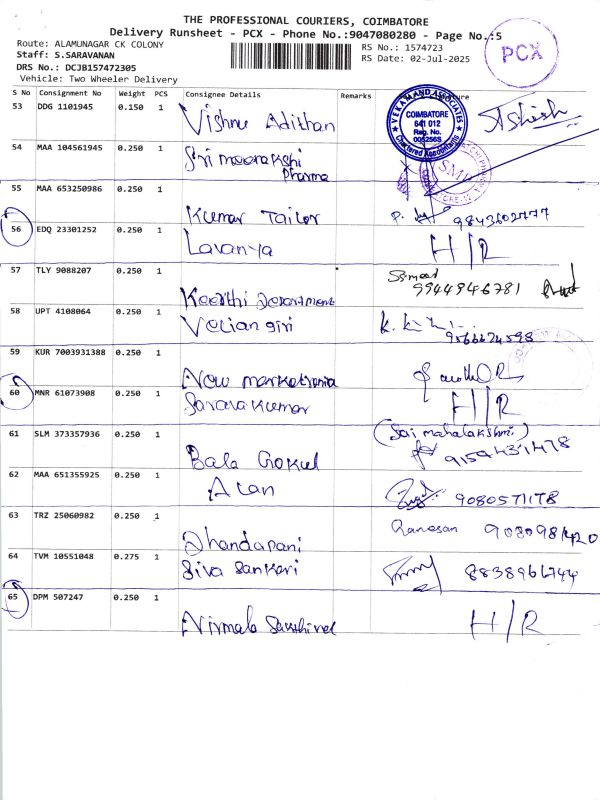 THE PROFESSIONAL COURIERS, COIMBATORE
Delivery Runsheet - PCX - Phone No.:9047080280 - Page No.:5
Route: ALAMUNAGAR CK COLONY
RS No.: 1574723
Staff: S.SARAVANAN
RS Date: 02-Jul-2025
DRS No.: DCJB157472305
Vehicle: Two Wheeler Delivery
PCX
S No Consignment No Weight PCS Consignee Details Remarks
53 DDG 1101945 0.150 1 Vishnu Adithan
VEKAMAND ASSOCIATES
COIMBATORE
641 012
Reg. No.
Chartered Accountants
54 MAA 104561945 0.250 1 Sri meenakshi
Pharma
SMP
55 MAA 653250986 0.250 1 Kumar Tailor 9843602777
56 EDQ 23301252 0.250 1 Lavanya H/R
57 TLY 9088207 0.250 1 Keerthi Department 9944946781
58 UPT 4108064 0.250 1 Veliangiri 9566624598
59 KUR 7003931388 0.250 1 New
60 MNR 61073908 0.250 1 Saravakumar H/R
61 SLM 373357936 0.250 1 Bala Gokul (Sai mahalakshmi)
9159431478
62 MAA 651355925 0.250 1 9080571178
63 TRZ 25060982 0.250 1 Dhandapani
64 TVM 10551048 0.275 1 Siva Sankari 8838966744
65 DPM 507247 0.250 1 Nirmala Sakthivel H/R